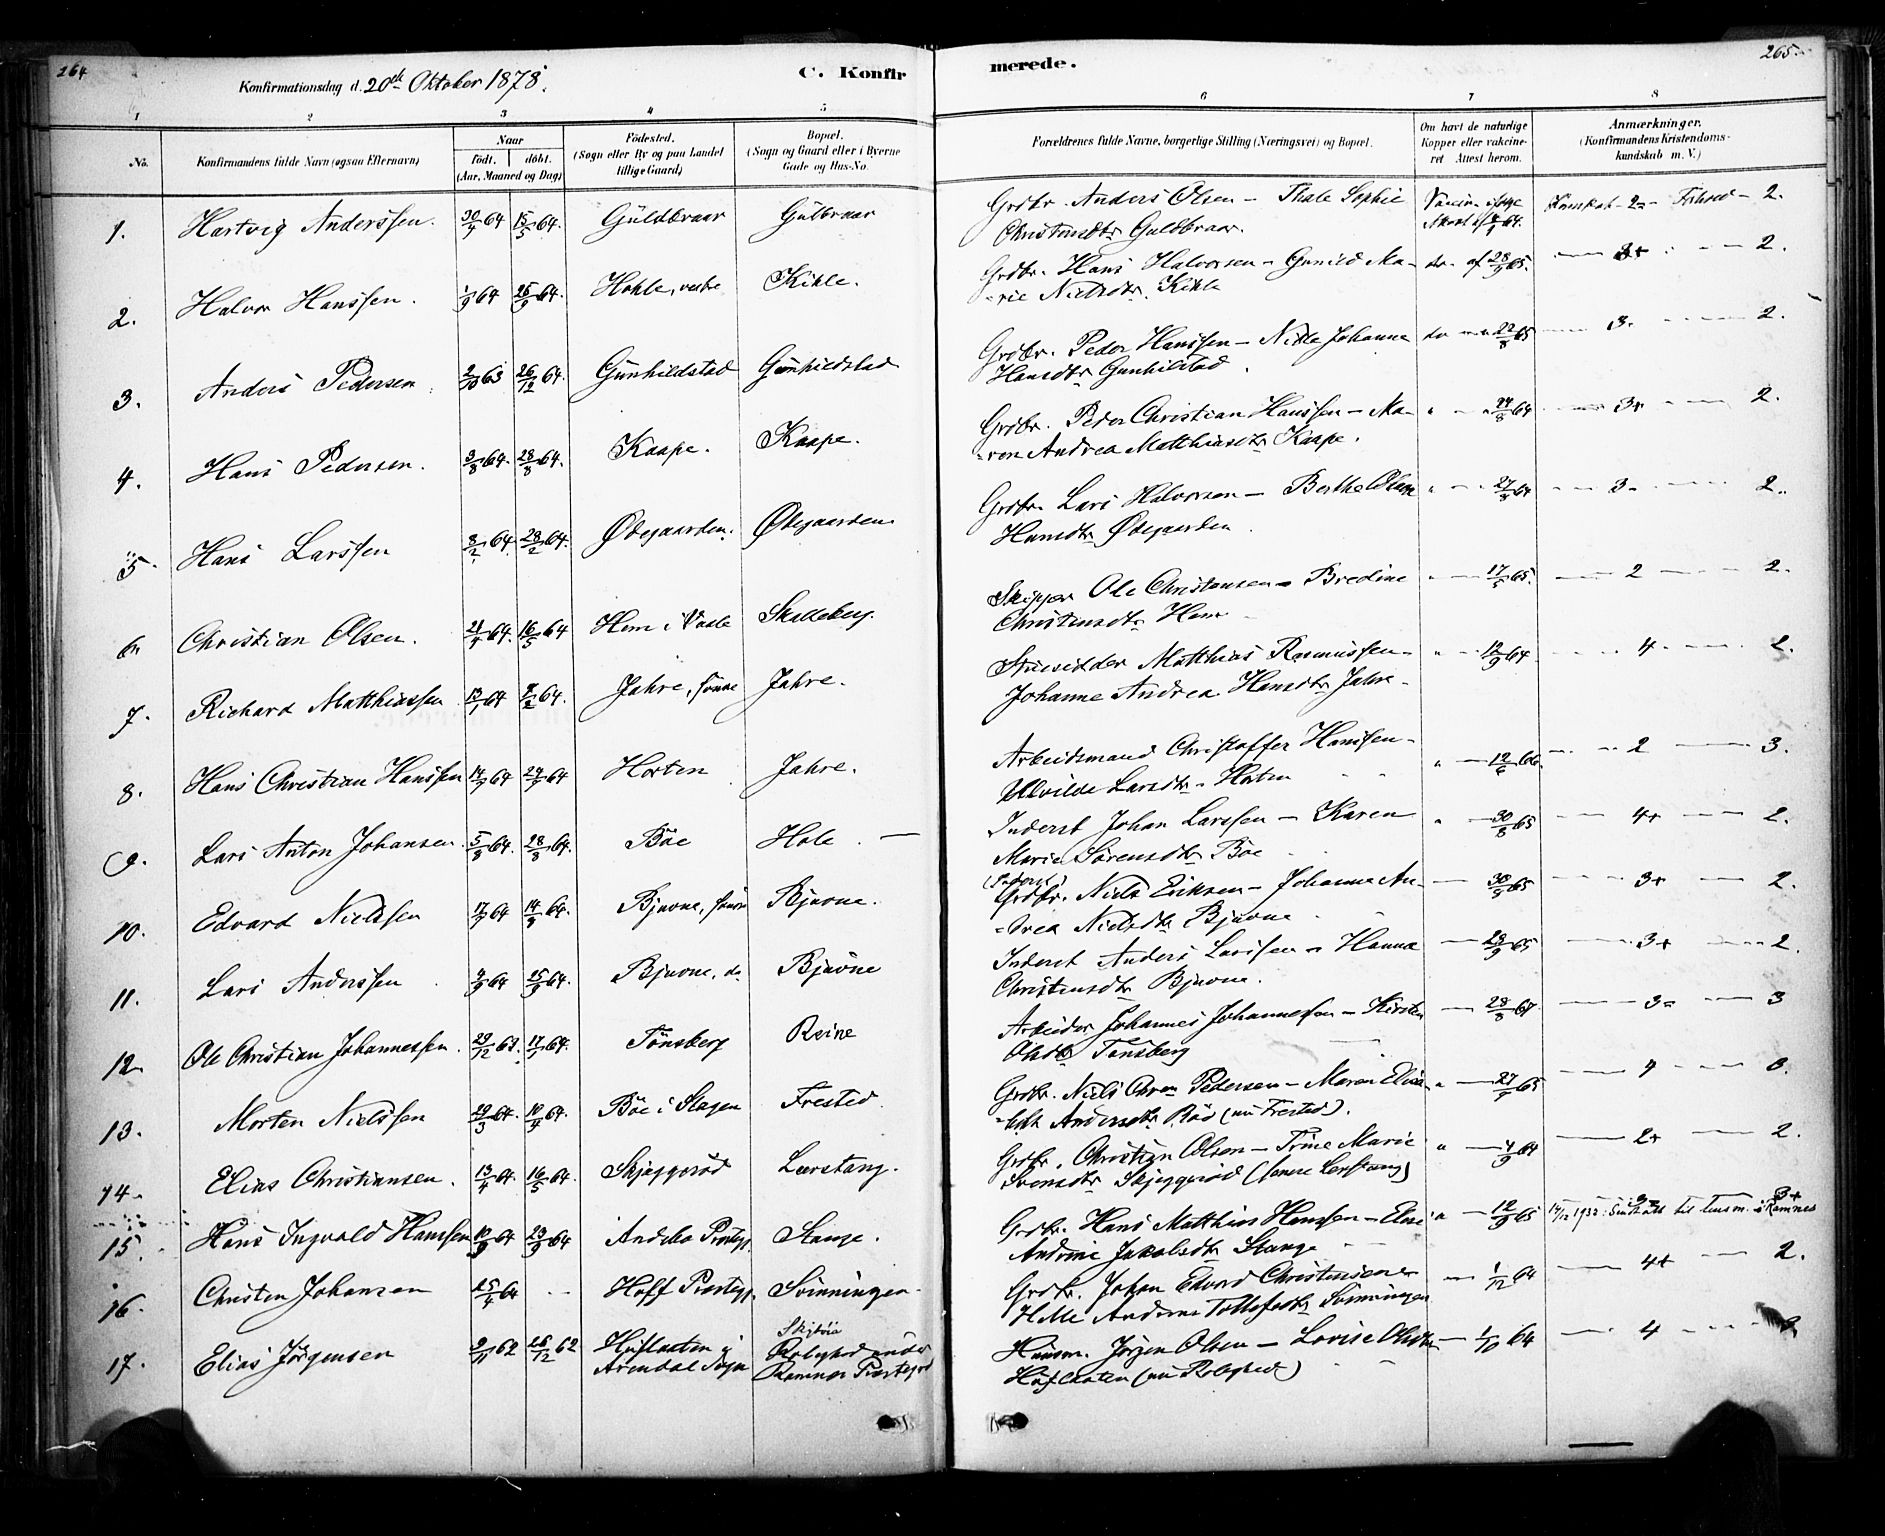 264
Konfirmationsdag d. 20de Oktober 1878.
C. Konfir
merede.
265.
1 2 3 4 5 6 7 8
No. Konfirmandens fulde Navn (ogsaa Efternavn)
Naar
födt. döbt.
(Aar, Maaned og Dag)
Födested.
(Sogn eller By og paa Landet
tillige Gaard)
Bopæl.
(Sogn og Gaard eller i Byerne
Gade og Hus-No.
Forældrenes fulde Navne, borgerlige Stilling (Næringsvei) og Bopæl.
Om havt de naturlige
Kopper eller vakcine-
ret Attest herom.
Anmærkninger.
(Konfirmandens Kristendoms-
kundskab m. V.)
1. Hartvig Anderssen. 30/4 64 15/5 64. Güldbraar Gulbraar Grdbr. Anders Olsen - Thale Sophie Kundskab - 2 - 2.
Christensdtr Guldbraar.
2. Halvor Hanssen. 1/9 64 25/9 64. Hohle, vestre Kihle. Grdbr. Hans Halvorsen - Gunild Ma- do. af 28/9 65. 3+ 2.
-rie Nielsdtr. Kihle
3. Anders Pedersen 2/10 63 26/12 64. Gunhildstad Gunhildstad Grdbr. Peder Hanssen - Johanne do 22/8 65 3- 2.
Hansdtr Gunhilstad
4. Hans Pedersen. 3/8 64. 28/8 64. Kaape. Kaape. Grdbr. Peder Christian Hanssen - Ma- " 24/8 64 3+ 2.
-ren Andrea Matthiasdtr Kaape.
5. Hans Larssen 8/2 64. 28/2 64. Ödegaarden. Ödegaarden Grdbr. Lars Halvorsen - Berthe Olava " 27/8 64 3- 2.
Hansdtr Ödegaarden.
6. Christian Olsen. 21/4 64. 16/5 64 Hem i Vaale Skalleberg. Skipper Ole Christensen - Bredine " 17/5 65. 2 2.
Christensdtr Hem
7. Richard Matthiassen 13/1 64 7/2 64. Jahre, søndre Jahre. Matthias Rasmussen - " 12/9 64 4 2.
Johanne Andrea Hansdtr Jahre -
8. Hans Christian Hanssen 14/7 64 24/7 64 Horten Jahre. Arbeidsmand Christoffer Hanssen - " 12/6 66. 2 3.
Larsdtr - Horten
9. Lars Anton Johansen. 5/8 64. 28/8 64. Böe Hole. Inderst Johan Larssen - Karen " 30/8 65 4+ 2.
Marie Sörensdtr Böe
10. Edvard Nielssen 17/7 64 14/8 64. Bjuvne, søndre Bjuvne. (Inderst)
Grdbr. Niels Eriksen - Johanne An- 30/8 65 3+ 2.
-drea Nielsdtr Bjuvne
11. Lars Anderssen 9/9 64 25/9 64. Bjuvne, do Bjuvne Inderst Anders Larssen - Hanna 28/9 65 3+ 2.
Christensdtr Bjuvne.
12. Ole Christian Johannessen. 29/12 63 17/1 64. Tönsberg Reine Arbeider Johannes Johannessen - Kirsten 28/8 67 3- 3
Olsdtr Tönsberg
13. Morten Nielssen 29/3 64. 10/4 64. Böe i Slagen Frested Grdbr. Niels Chren Pedersen - Maren Elisa- " 27/7 65 4
-beth Andersdtr. Böe (nu Frested).
14. Elias Christiansen. 13/4 64. 16/5 64. Skjeggeröd Lærstang. Grdbr. Christian Olsen - Trine Marie " 4/9 64 2+ 2.
Svensdtr Skjeggeröd (senere Lerstang)
15. Hans Ingvald Hanssen 10/9 64 29/9 64 Andebo Prstgj Stange. Grdbr. Hans Matthias Hanssen - Elen " 12/9 65 i Ramnes
Andrine Jakobsdtr Stange
16. Christen Johansen 25/4 64 Hoff Prestgj. Svinningen Grdbr. Johan Edvard Christensen - 1/12 64 4+ 2.
Andrine Tollefsdtr Svinningen
17. Elias Jörgensen 2/11 62 26/12 62 i
Arendal Sogn
Rolighed under
Ramnes Prestegjd Husm. Jörgen Olsen - Lovise Olsdtr 1/10 64 4
(nu Roligheds)